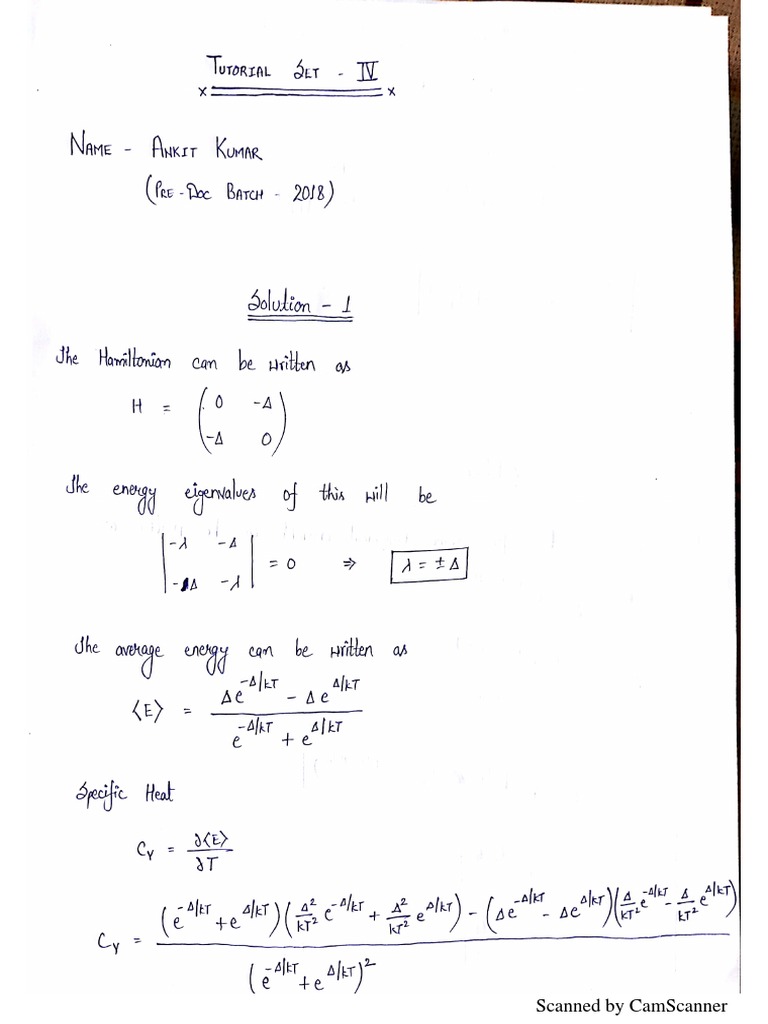 TUTORIAL SET - IV
NAME - ANKIT KUMAR
(PRE-DOC BATCH - 2018)
Solution - 1
The Hamiltonian can be written as
H = ( 0 -Δ
-Δ 0 )
The energy eigenvalues of this will be
| -λ -Δ
-Δ -λ | = 0 ⇒ λ = ± Δ
The average energy can be written as
⟨E⟩ = (Δe^{-Δ/kT} - Δe^{Δ/kT}) / (e^{-Δ/kT} + e^{Δ/kT})
Specific Heat
C_V = ∂⟨E⟩ / ∂T
C_V = [(e^{-Δ/kT} + e^{Δ/kT})(Δ²/kT² e^{-Δ/kT} + Δ²/kT² e^{Δ/kT}) - (Δe^{-Δ/kT} - Δe^{Δ/kT})(Δ/kT² e^{-Δ/kT} - Δ/kT² e^{Δ/kT})] / (e^{-Δ/kT} + e^{Δ/kT})²
Scanned by CamScanner